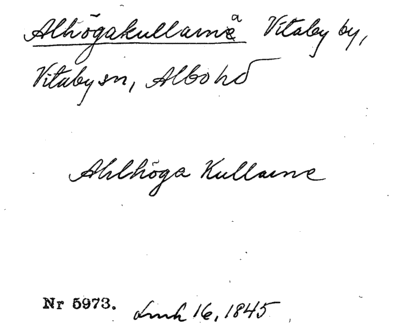 Alhögakullarna Vitaby by,
Vitaby sn, Albo hd
Ahlhöga Kullarne
Nr 5973. Lmk 16, 1845